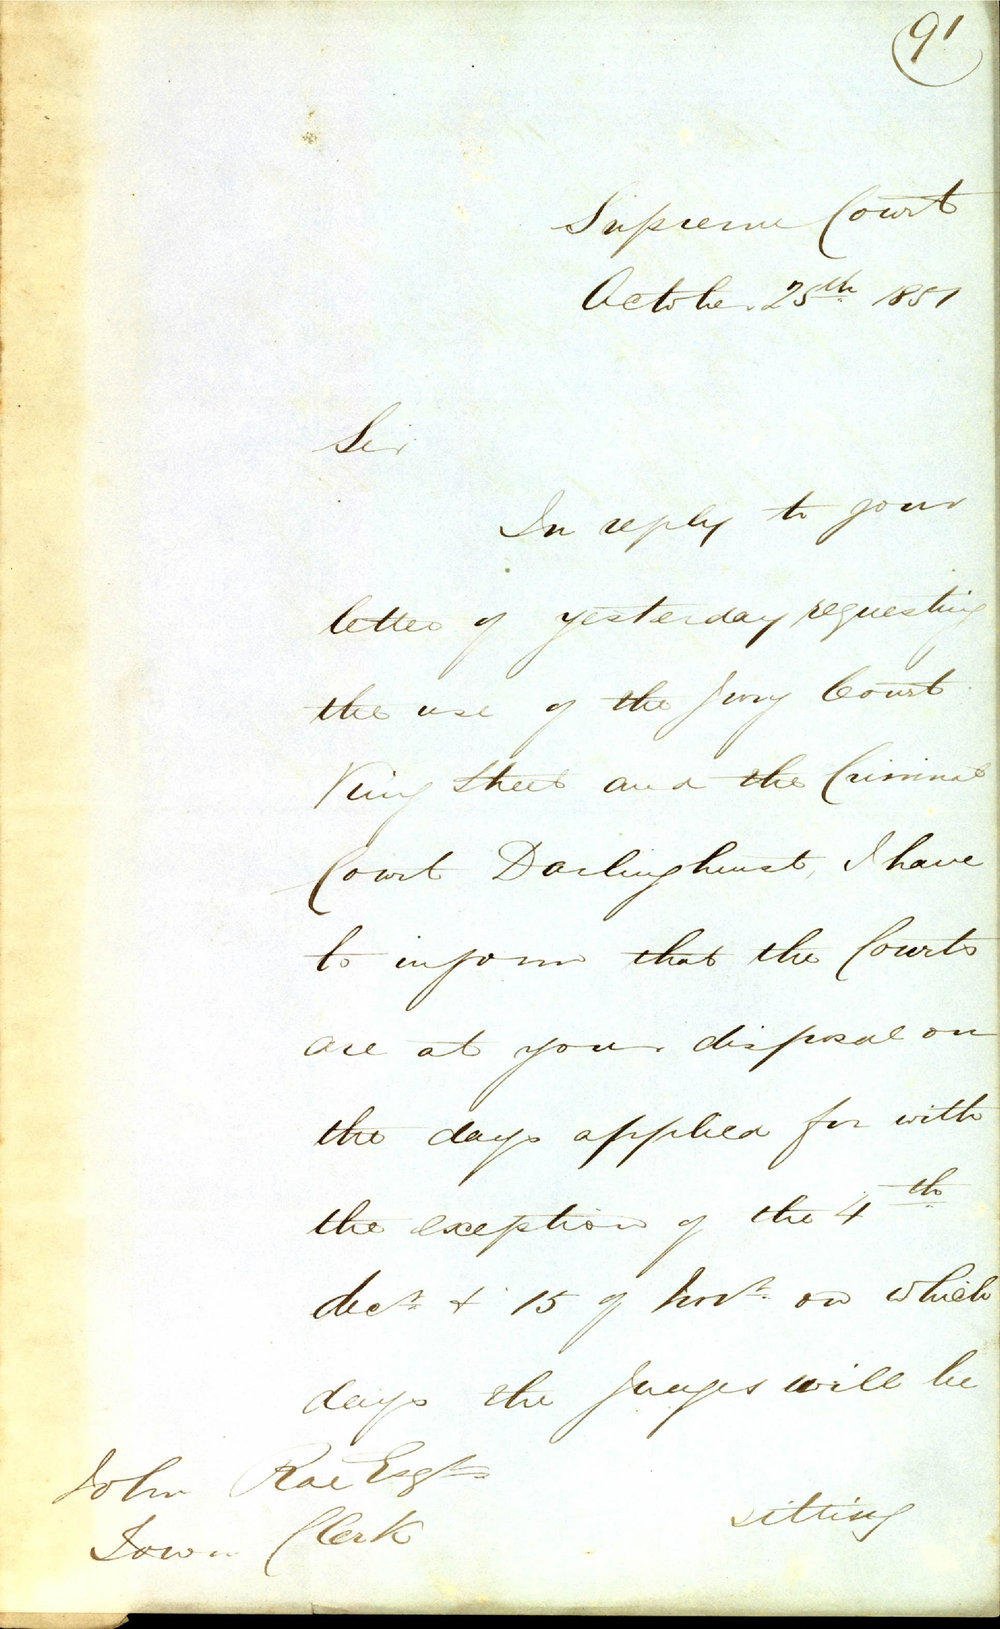 91
Supreme Court
October 25th 1851
Sir
In reply to your
letter of yesterday requesting
the use of the Jury Court
King Street and the Criminal
Court Darlinghurst, I have
to inform that the Courts
are at your disposal on
the days applied for with
the exception of the 4th
&  15 of Novr. on which
days the Judges will be
sitting
John Rae Esqre
Town Clerk